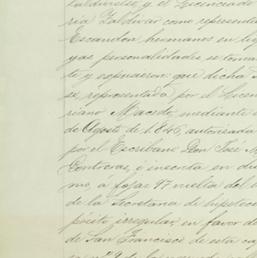 y el Licenciado
ria Zaldivar como representa
Escandon hermanos en liqui
yas personalidades se toma
te y espusieron que dicha
se, representada por el Licen
riano Macedo, mediante
de Agosto de 1846, autorizada
por el Escribano Don José M
Contreras, é inserta en
mo, á fojas 97 vuelta del
de la Secretaria de hipotecas
pósito irregular, en favor de
de San Francisco de esta ca